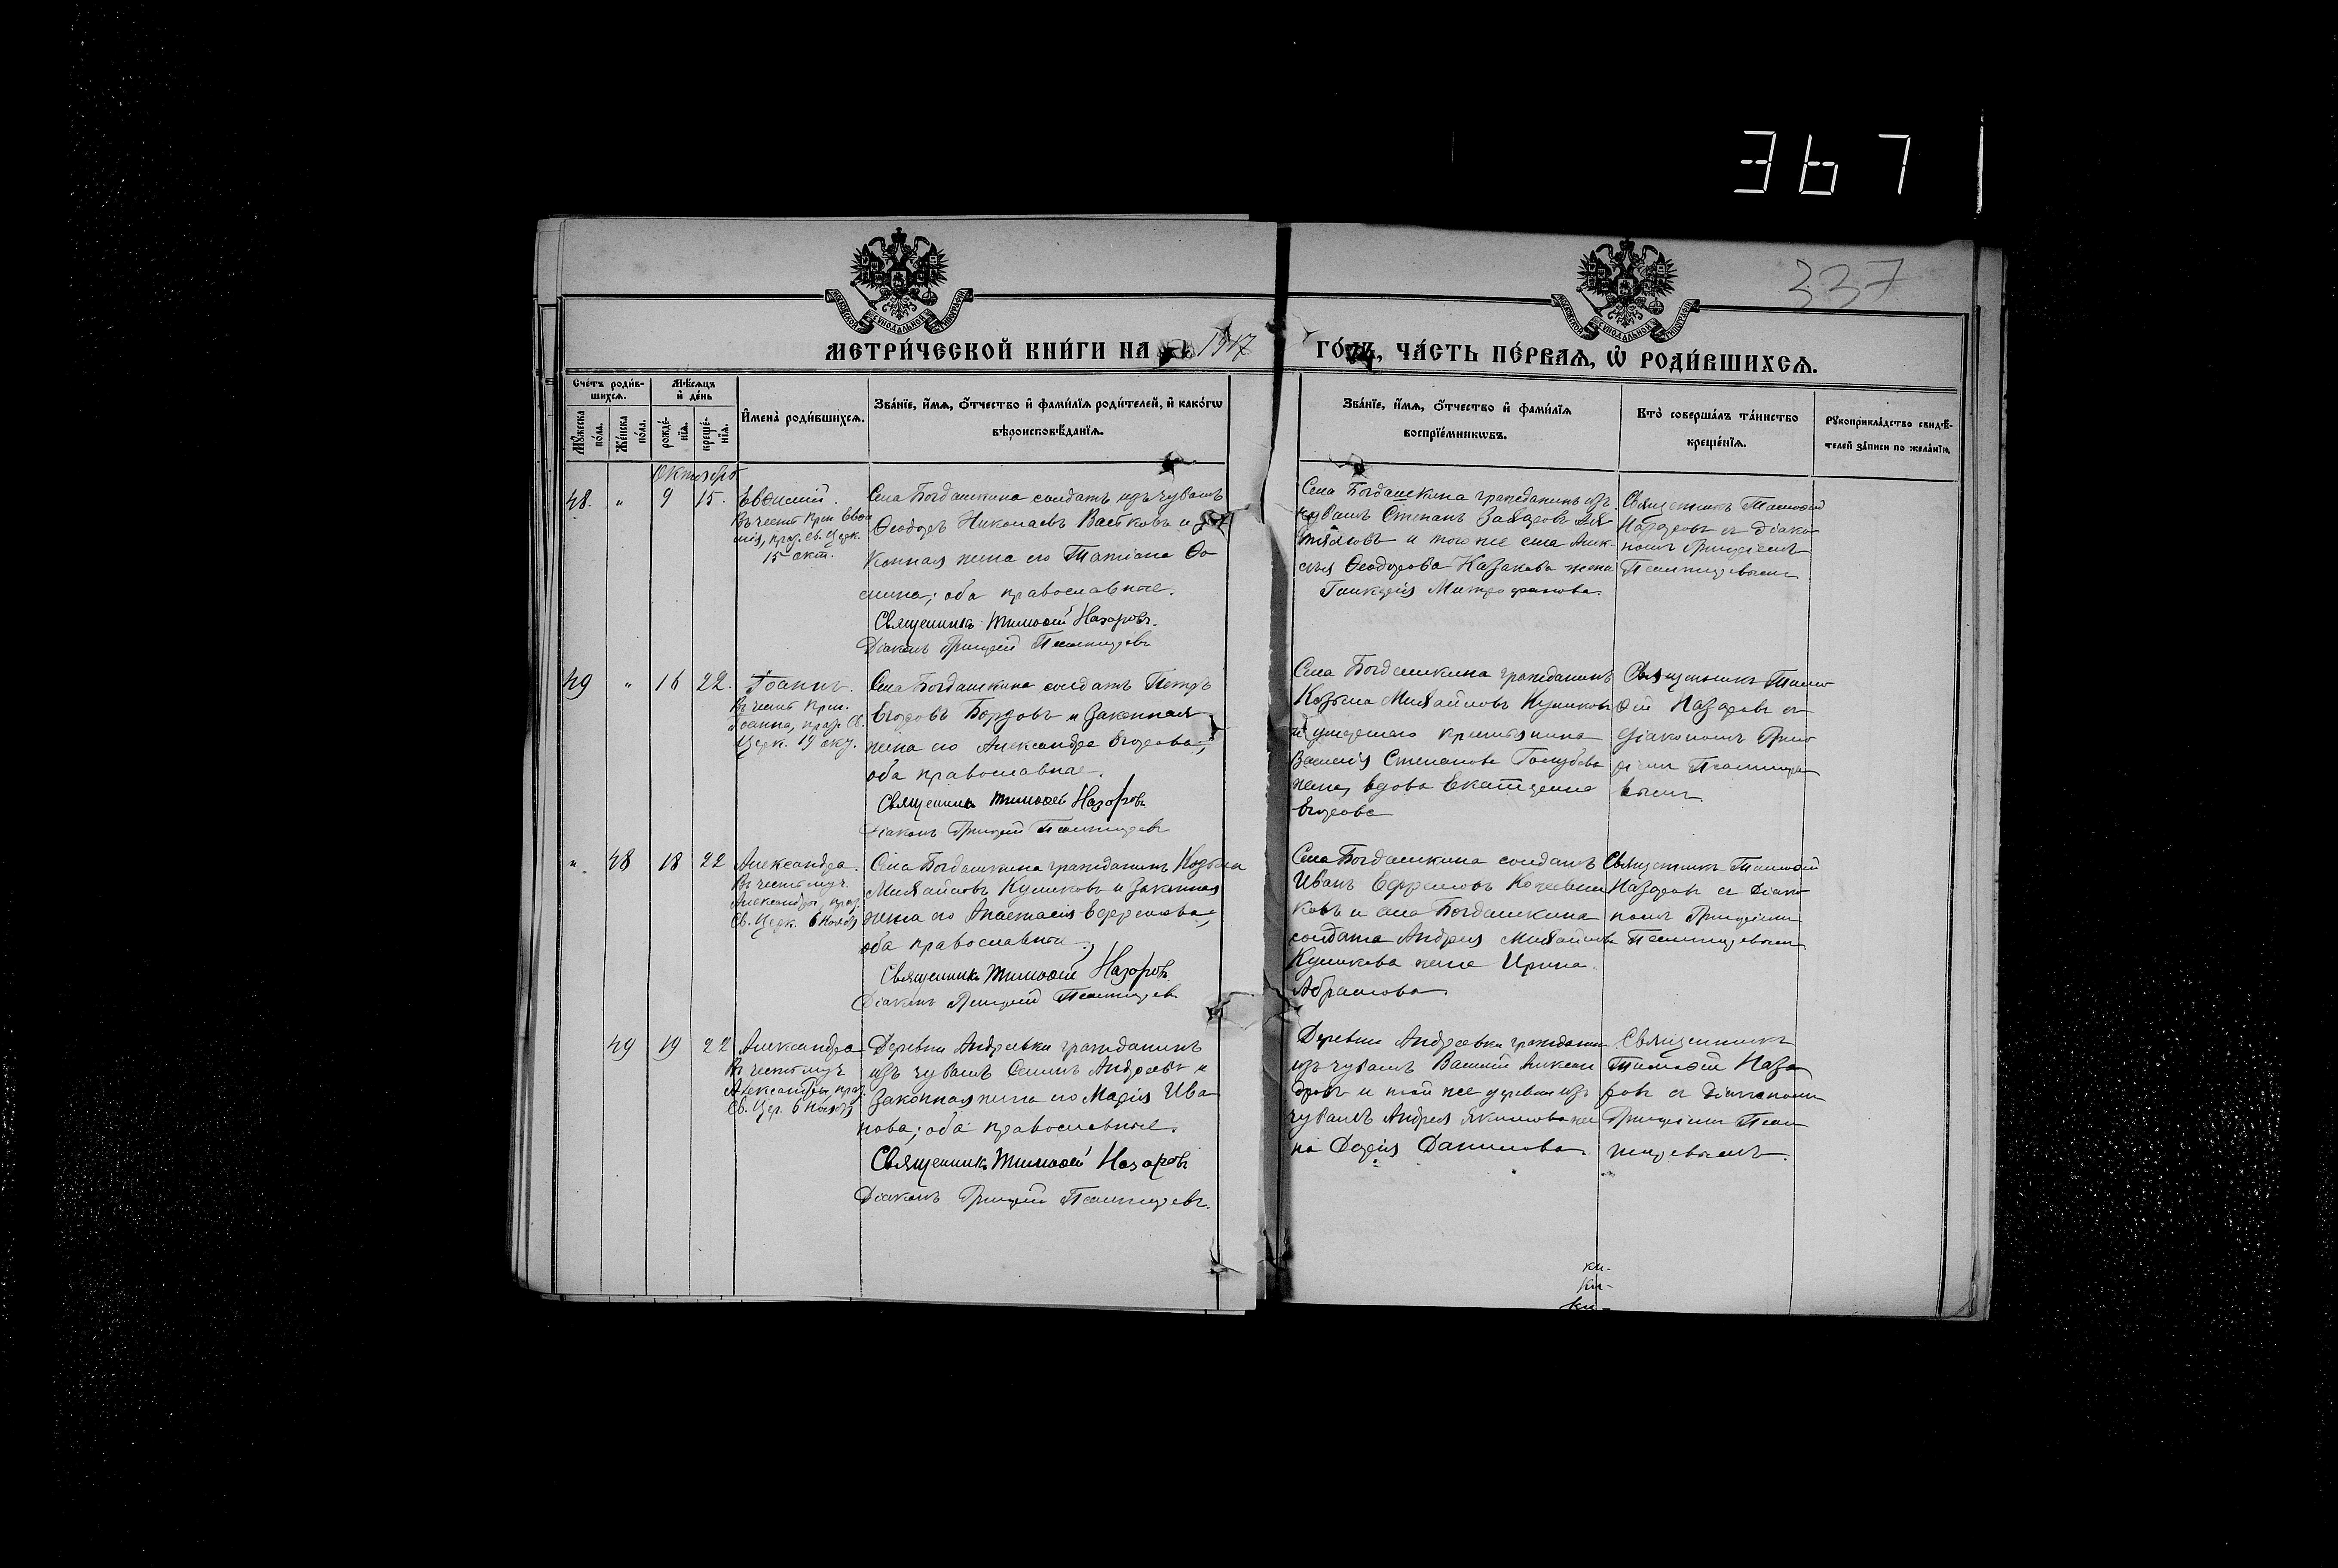 367
337
МОСКОВСКОЙ СУНОДАЛЬНОЙ ТИПОГРАФІИ
МОСКОВСКОЙ СУНОДАЛЬНОЙ ТИПОГРАФІИ
МЕТРИ́ЧЕСКОЙ КНИ́ГИ НА 1917
ГО́ДЪ, ЧА́СТЬ ПЕ́РВАѦ, Ѡ҆ РОДИ́ВШИХСѦ.
Сче́тъ роди́в-
шихсѧ.
Мѣ́сѧцъ
и҆ де́нь
Мꙋ́жеска
по́ла.
Же́нска
по́ла.
рожде́-
нїѧ.
креще́-
нїѧ.
И҆мена̀ роди́вшихсѧ.
Зва́нїе, и҆́мѧ, о҆́тчество и҆ фами́лїѧ роди́телей, и҆ како́гѡ
вѣроисповѣ́данїѧ.
Зва́нїе, и҆́мѧ, о҆́тчество и҆ фами́лїѧ
воспрїе́мникѡвъ.
Кто̀ соверша́лъ та́инство
креще́нїѧ.
Рꙋкоприкла́дство свидѣ́-
телей за́писи по жела́нїю
Октябрь
48. " 9 15.
Евѳимій.
Въ честь Преп. Евѳи
мія, праз. Св. Церк.
15 окт.
Села Богдашкина солдатъ изъ чувашъ
Ѳеодоръ Николаевъ Вастковъ и за
конная жена его Татіана Ѳо
мина; оба православные.
Священникъ Тимоѳей Назаровъ.
Діаконъ Григорій
Села Богдашкина гражданинъ изъ
чувашъ Степанъ Захаровъ
и того же села Алек-
сѣя Ѳеодорова Казакова жена
Гликерія Митрофанова.
Священникъ Тимоѳей
Назаровъ съ діако
номъ Григоріемъ
49 " 16 22.
Іоаннъ.
Въ честь Преп.
Іоанна, праз. Св.
Церк. 19 окт.
Села Богдашкина солдатъ Петръ
Егоровъ Бордовъ и законная
жена его Александра Егорова;
оба православные.
Священникъ Тимоѳей Назаровъ
Діаконъ Григорій
Села Богдашкина гражданинъ
Козьма Михайловъ Куликовъ
и умершаго крестьянина
Василія Степанова Голубева
жена, вдова Екатерина
Егорова
Священникъ Тимо
ѳей Назаровъ съ
діакономъ Григо
ріемъ
" 48 18 22
Александра.
Въ честь муч.
Александры, праз.
Св. Церк. 6 Ноября
Села Богдашкина гражданинъ Козьма
Михайловъ Куликовъ и законная
жена его Анастасія Ефремова;
оба православные.
Священникъ Тимоѳей Назаровъ
Діаконъ Григорій
Села Богдашкина солдатъ
Иванъ Ефремовъ Кочевни
ковъ и села Богдашкина
солдата Андрея Михайлова
Куликова жена Ирина
Абрамова
Священникъ Тимоѳей
Назаровъ съ діако
номъ Григоріемъ
49 19 22
Александра
Въ честь муч.
Александры, праз.
Св. Цер. 6 Ноября
Деревни Андреевки гражданинъ
изъ чувашъ Семенъ Андреевъ и
законная жена его Марія Ива
нова; оба православные.
Священникъ Тимоѳей Назаровъ
Діаконъ Григорій
Деревни Андреевки гражданинъ
изъ чувашъ Василій Александ
ровъ и той же деревни изъ
чувашъ Андрея Якимова же
на Дарія Данилова.
Священникъ
Тимоѳей Наза
ровъ съ діакономъ
Григоріемъ
ки-
ки-
ки-